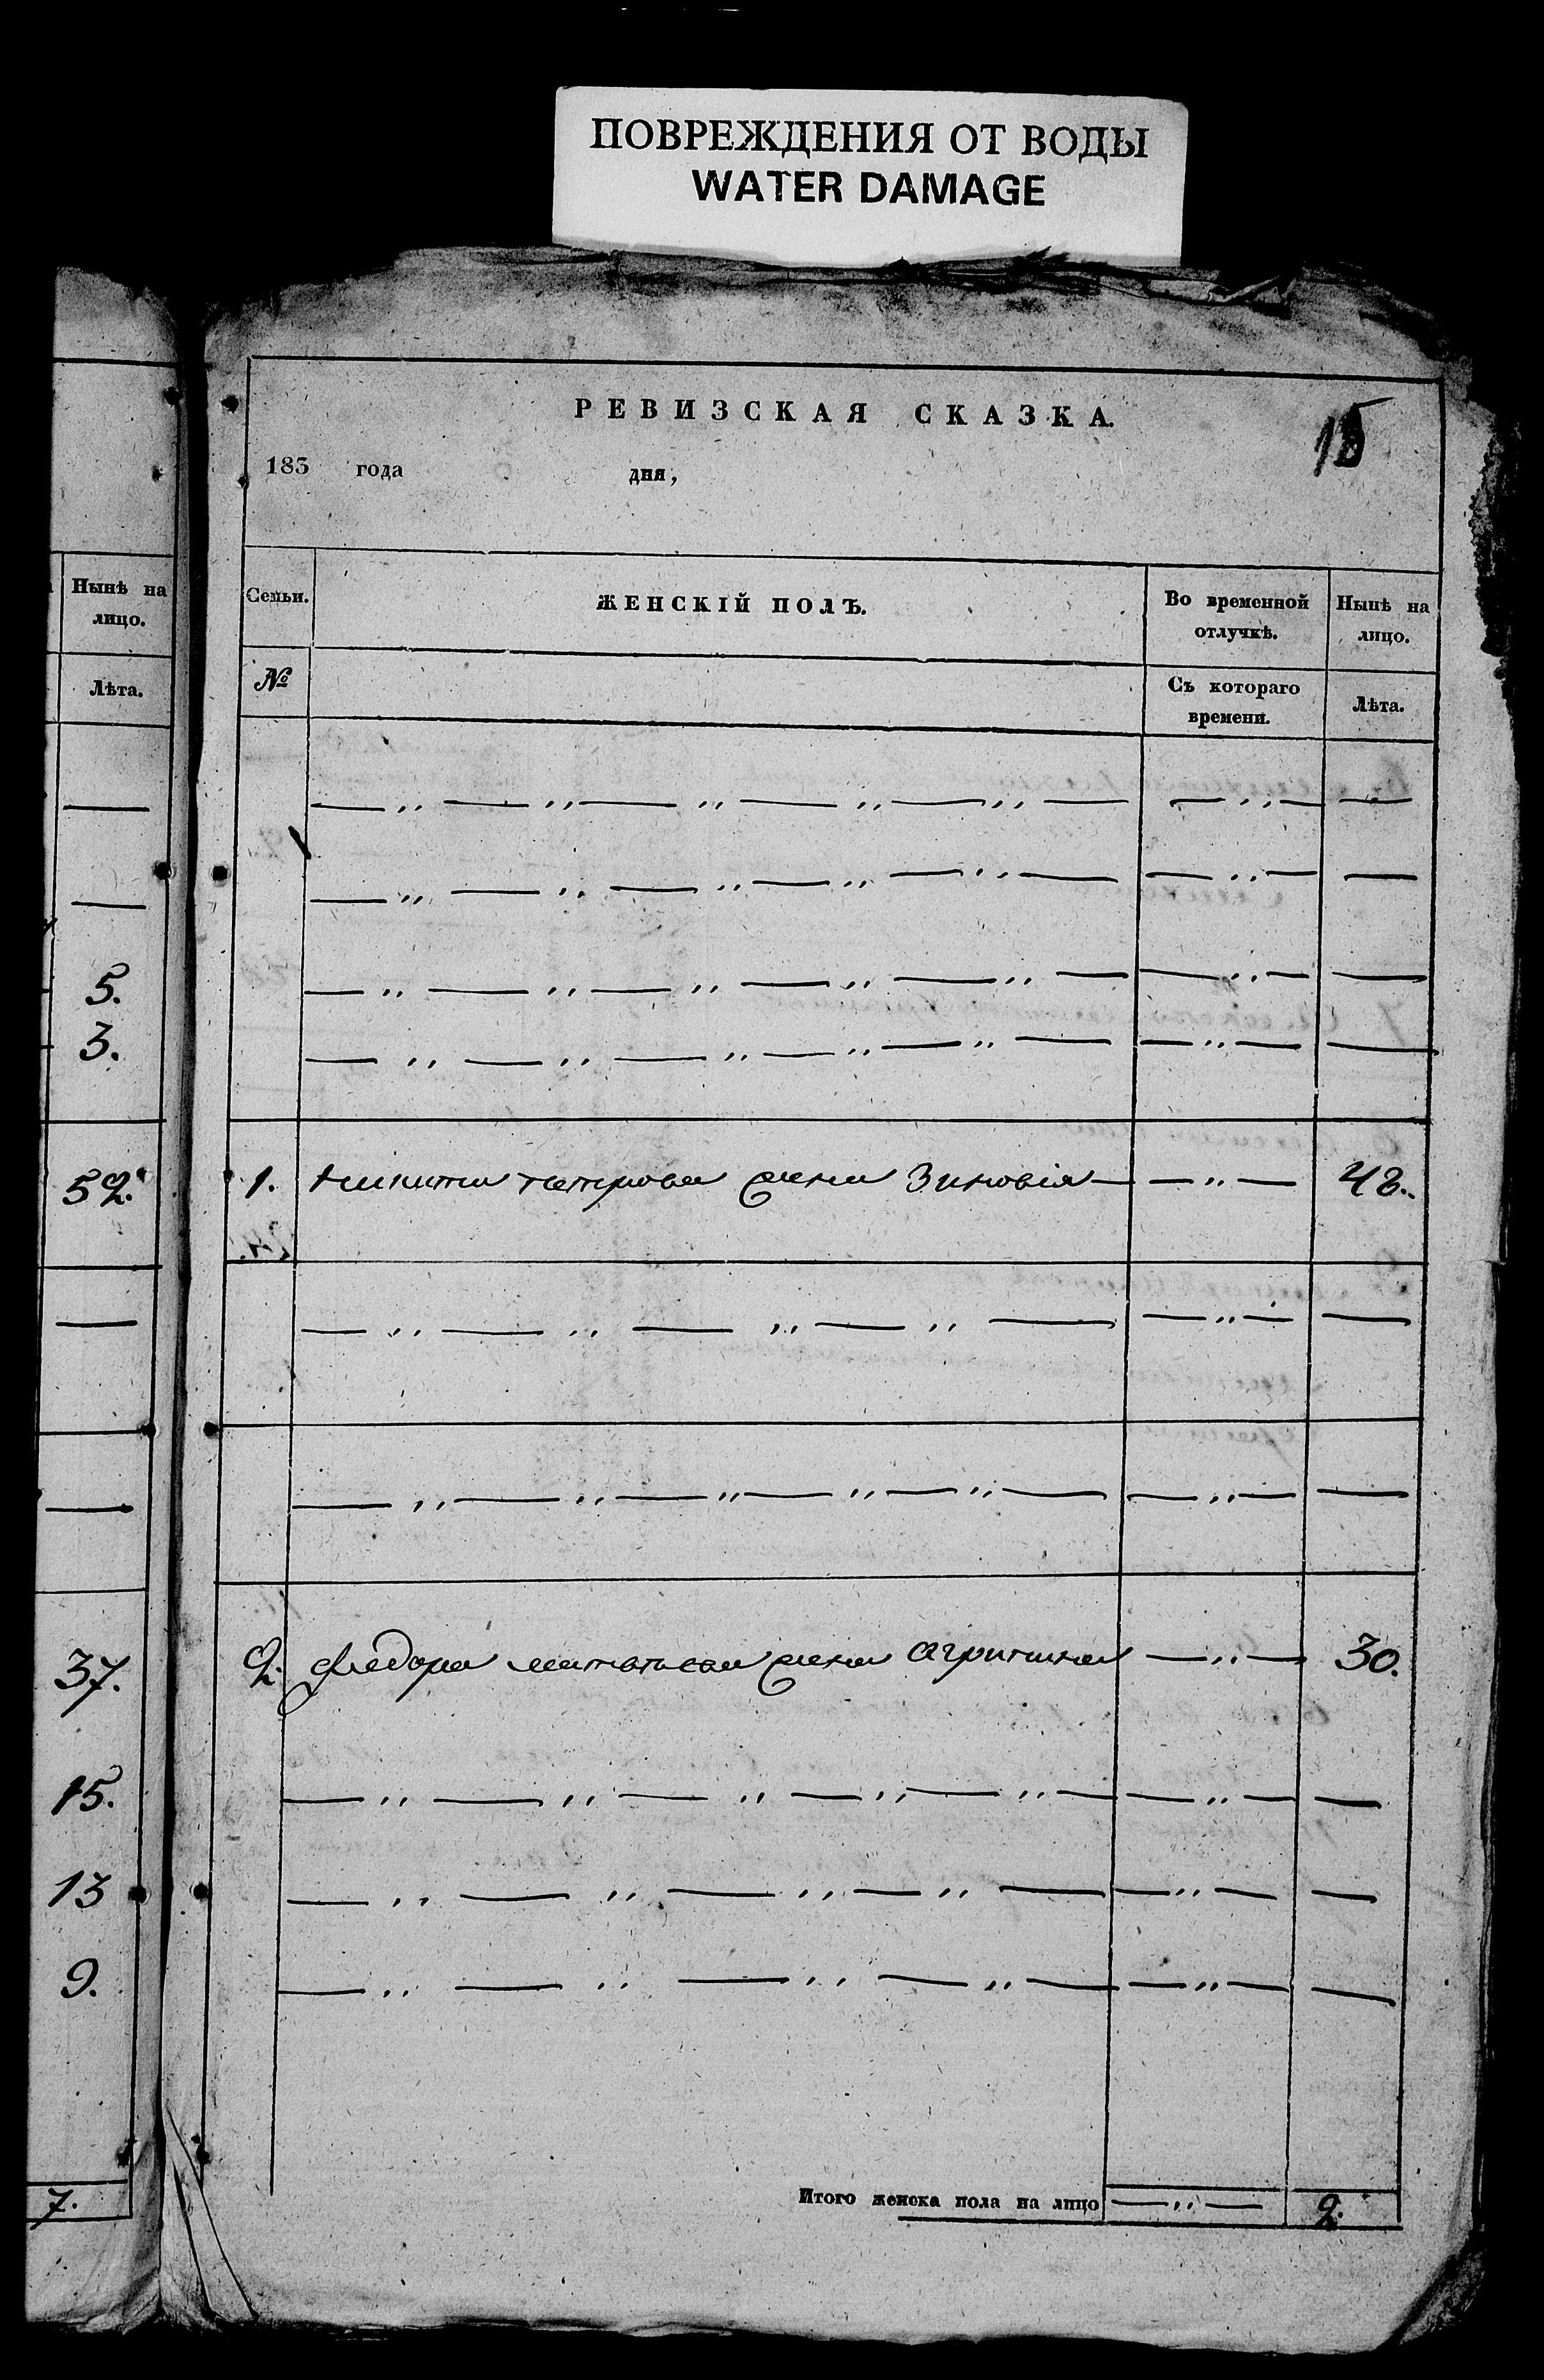 ПОВРЕЖДЕНИЯ ОТ ВОДЫ
WATER DAMAGE
РЕВИЗСКАЯ СКАЗКА.
15
183 года дня,
Нынѣ на
лицо.
Лѣта.
5.
3.
52.
37.
15.
13
9.
7.
Семьи.
№
ЖЕНСКІЙ ПОЛЪ.
Во временной
отлучкѣ.
Съ котораго
времени.
Нынѣ на
лицо.
Лѣта.
— „ — „ — „ — „ — „ — — „ — —
— „ — „ — „ — „ — „ — — „ — —
— „ — „ — „ — „ — „ — — „ — —
— „ — „ — „ — „ — „ — — „ — —
1. Никиты петрова жена Зиновія — — „ — 48.
— „ — „ — „ — „ — — „ — —
— „ — „ — „ — „ — „ — — „ — —
2. Федора матвѣева жена Агрипина — „ — 30.
— „ — „ — „ — „ — „ — — „ — —
— „ — „ — „ — „ — — „ — —
— „ — „ — „ — „ — — „ — —
Итого женска пола на лицо — „ — 2.